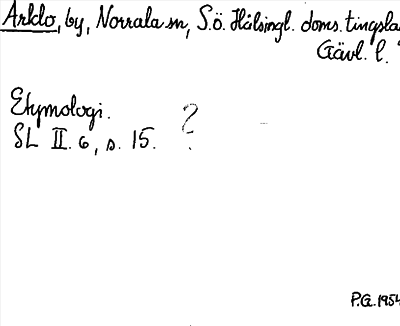 Arklo, by, Norrala sn, S.ö. Hälsingl. doms. tingsla
Gävl. l.
Etymologi.
SL II. 6, s. 15. ?
P.G. 1954